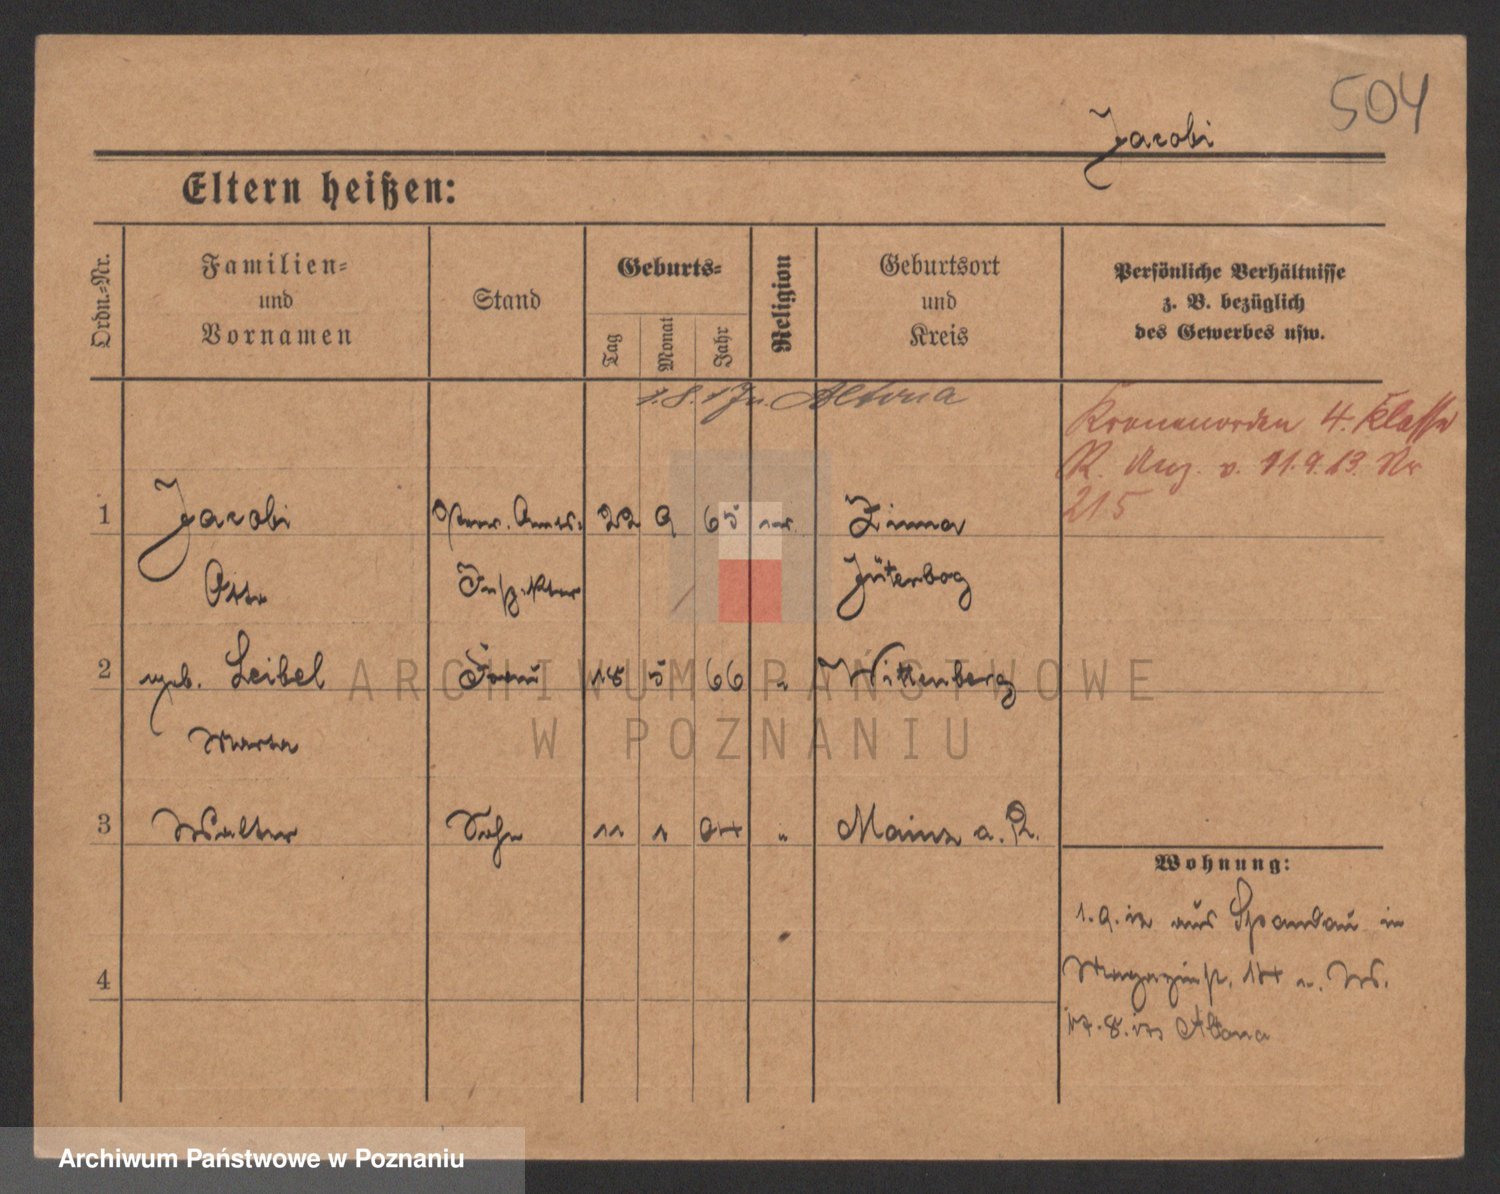 504
Jacobi
Eltern heißen:
Ordn.-Nr.
Familien-
und
Vornamen
Stand
Geburts-
Tag
Monat
Jahr
Religion
Geburtsort
und
Kreis
Persönliche Verhältnisse
z. B. bezüglich
des Gewerbes usw.
Altona
Kronenorden 4. Klasse
R. Anz. v. 11.9.13. Nr
215
1 Jacobi 22 9 65 ev. Zinna
Otto Inspektor Jüterbog
2 geb. Leibel Frau 18 5 66 " Wittenberg
Maria
3 Walter Sohn 11 1 94 " Mainz a. R.
Wohnung:
1.9. aus Spandau in
4 Magazinst. 14
17.8. Altona
ARCHIWUM PAŃSTWOWE
W POZNANIU
Archiwum Państwowe w Poznaniu